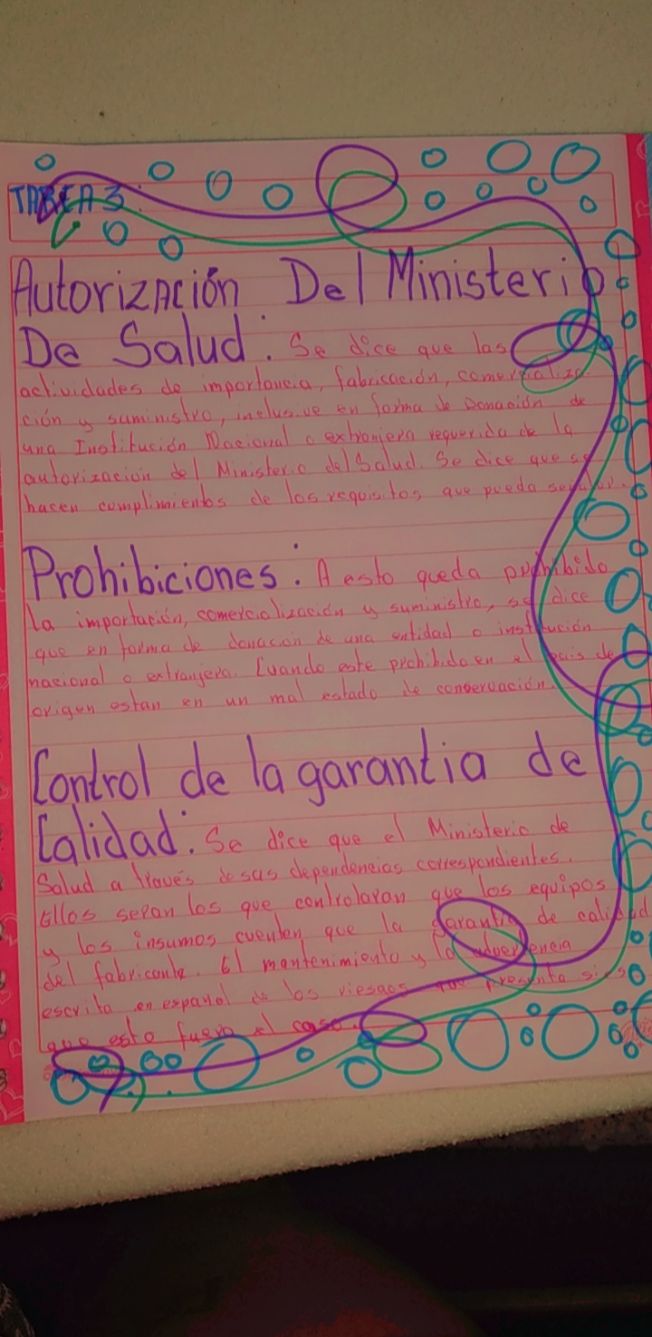 TAREA 3:
Autorización Del Ministerio
De Salud: Se dice que las
actividades de importancia, fabricación, comercializa
ción y suministro, inclusive en forma de Donación de
una Institución Nacional o extranjera requerida de la
autorización del Ministerio del Salud. Se dice que se
hacen cumplimientos de los requisitos que pueda
Prohibiciones: A esto queda prohibido
la importación, comercialización y suministro, se dice
que en forma de donación de una entidad o institución
nacional o extranjera. Cuando este prohibido en el pais de
origen estan en un mal estado de conservación.
Control de la garantia de
Calidad: Se dice que el Ministerio de
Salud a través de sus dependencias correspondientes.
Ellos seran los que controlaran que los equipos
y los insumos cuenten que la garantia de calidad
del fabricante. El mantenimiento y la advertencia
escrita en español de los riesgos que presenta si es
que esto fuera el caso.